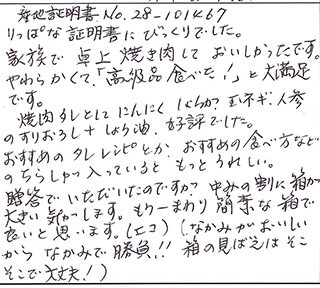 産地証明書No.28-101467
りっぱな証明書にびっくりでした。
家族で卓上焼き肉しておいしかったです。
やわらかくて、「高級品食べた!」と大満足
です。
焼肉タレとしてにんにく しょうが 玉ネギ、人参
のすりおろし+しょう油、好評でした。
おすすめのタレレシピとか、おすすめの食べ方など
のちらし入っていると、もっとうれしい。
贈答でいただいたのですが、中みの割に箱が
大きい気がします。もう一まわり簡素な箱で
良いと思います。(エコ)(なかみがおいしい
からなかみで勝負!! 箱の見ばえはそこ
そこで大丈夫!)